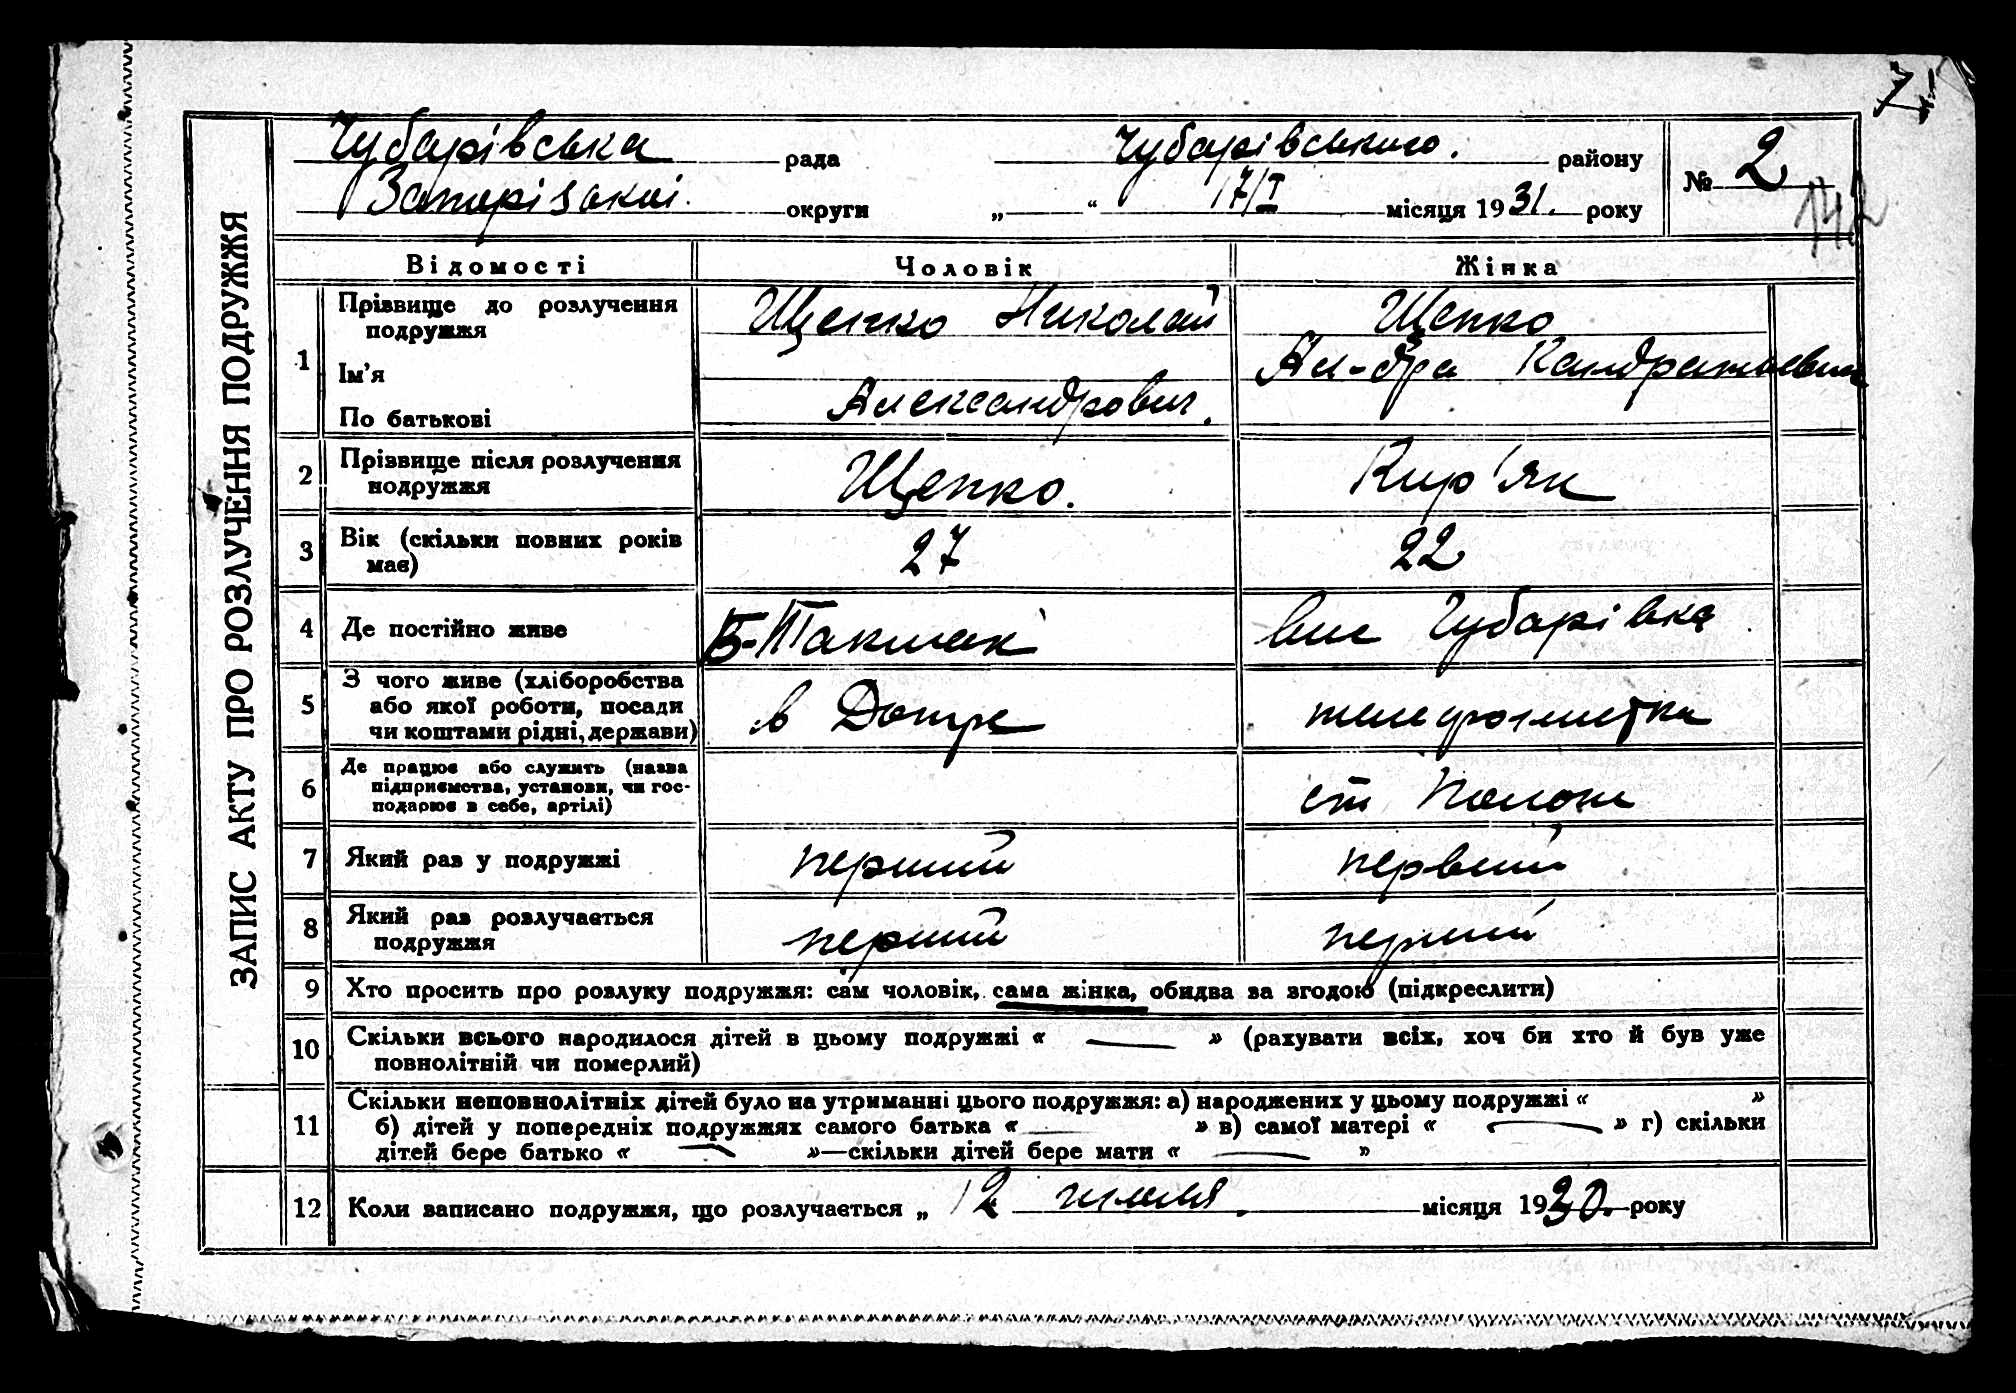 71
Чубарівська рада Чубарівського. району № 2
Запорізької округи „ “ 17/I місяця 1931. року
142
ЗАПИС АКТУ ПРО РОЗЛУЧЕННЯ ПОДРУЖЖЯ
Відомості Чоловік Жінка
1 Прізвище до розлучення подружжя Щепко Николай Щепко
Ім'я Ал-дра Кандратьевна
По батькові Александрович.
2 Прізвище після розлучення Щепко. Кир'як
подружжя
3 Вік (скільки повних років 27 22
має)
4 Де постійно живе Б-Токмак Чубарівка
5 З чого живе (хліборобства
або якої роботи, посади в Допре телефонистка
чи коштами рідні, держави)
6 Де працює або служить (назва
підприємства, установи, чи гос- ст Пологи
подарює в себе, артілі)
7 Який раз у подружжі перший первий
8 Який раз розлучається перший перший
подружжя
9 Хто просить про розлуку подружжя: сам чоловік, сама жінка, обидва за згодою (підкреслити)
10 Скільки всього народилося дітей в цьому подружжі « — » (рахувати всіх, хоч би хто й був уже
повнолітній чи померлий)
11 Скільки неповнолітніх дітей було на утриманні цього подружжя: а) народжених у цьому подружжі « »
б) дітей у попередніх подружжях самого батька « — » в) самої матері « — » г) скільки
дітей бере батько « — »—скільки дітей бере мати « — »
12 Коли записано подружжя, що розлучається „ 12 июля. місяця 1930. року